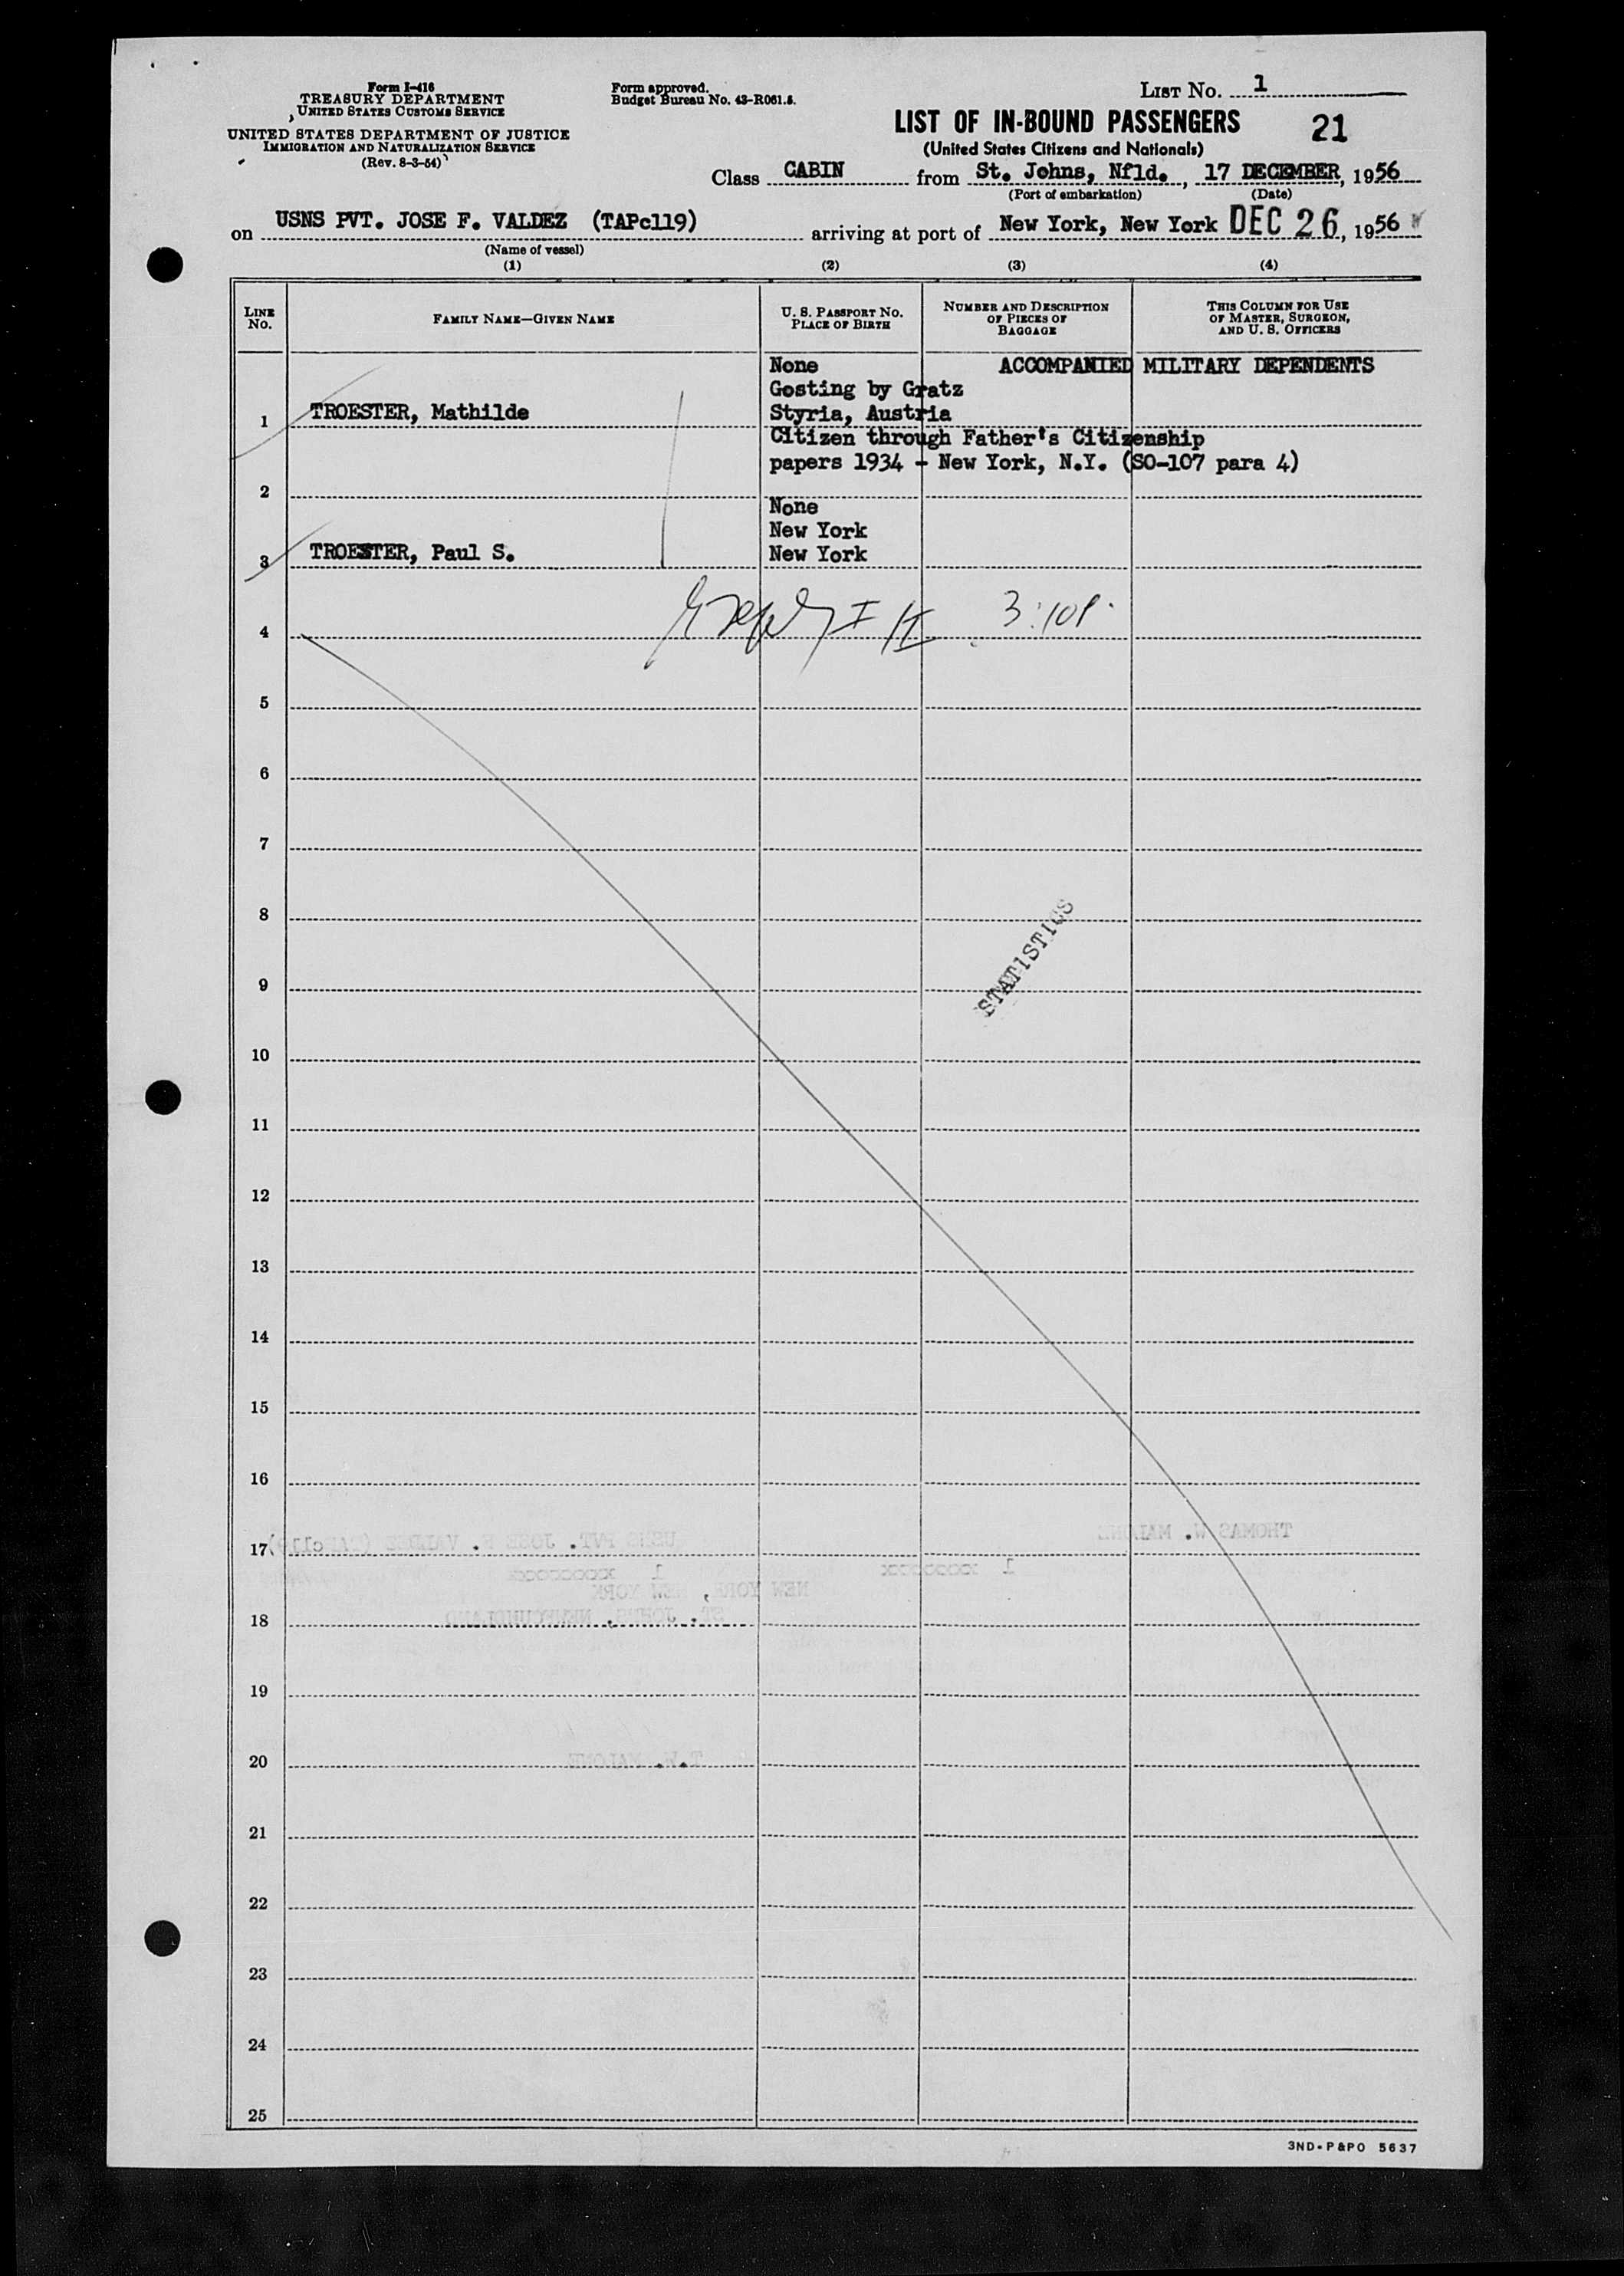 Form I-416
TREASURY DEPARTMENT
UNITED STATES CUSTOMS SERVICE
UNITED STATES DEPARTMENT OF JUSTICE
IMMIGRATION AND NATURALIZATION SERVICE
(Rev. 8-3-54)
Form approved.
Budget Bureau No. 43-R061.8.
LIST No. 1
LIST OF IN-BOUND PASSENGERS 21
(United States Citizens and Nationals)
Class CABIN from St. Johns, Nfld., 17 DECEMBER, 1956
(Port of embarkation) (Date)
on USNS PVT. JOSE F. VALDEZ (TAPc119) arriving at port of New York, New York DEC 26, 1956
(Name of vessel)
(1) (2) (3) (4)
LINE No. FAMILY NAME—GIVEN NAME U. S. PASSPORT No. PLACE OF BIRTH NUMBER AND DESCRIPTION OF PIECES OF BAGGAGE THIS COLUMN FOR USE OF MASTER, SURGEON, AND U. S. OFFICERS
None ACCOMPANIED MILITARY DEPENDENTS
Gosting by Gratz
1 TROESTER, Mathilde Styria, Austria
Citizen through Father's Citizenship
papers 1934 - New York, N.Y. (SO-107 para 4)
2
None
New York
3 TROESTER, Paul S. New York
4
5
6
7
8
STATISTICS
9
10
11
12
13
14
15
16
THOMAS W. MALONE
USNS PVT. JOSE F. VALDEZ (TAPc119)
17
1 xxxxxxxx 1 xxxxxxxxx
NEW YORK, NEW YORK
ST. JOHNS, NEWFOUNDLAND
18
19
T.W. MALONE
20
21
22
23
24
25
3ND-P&PO 5637